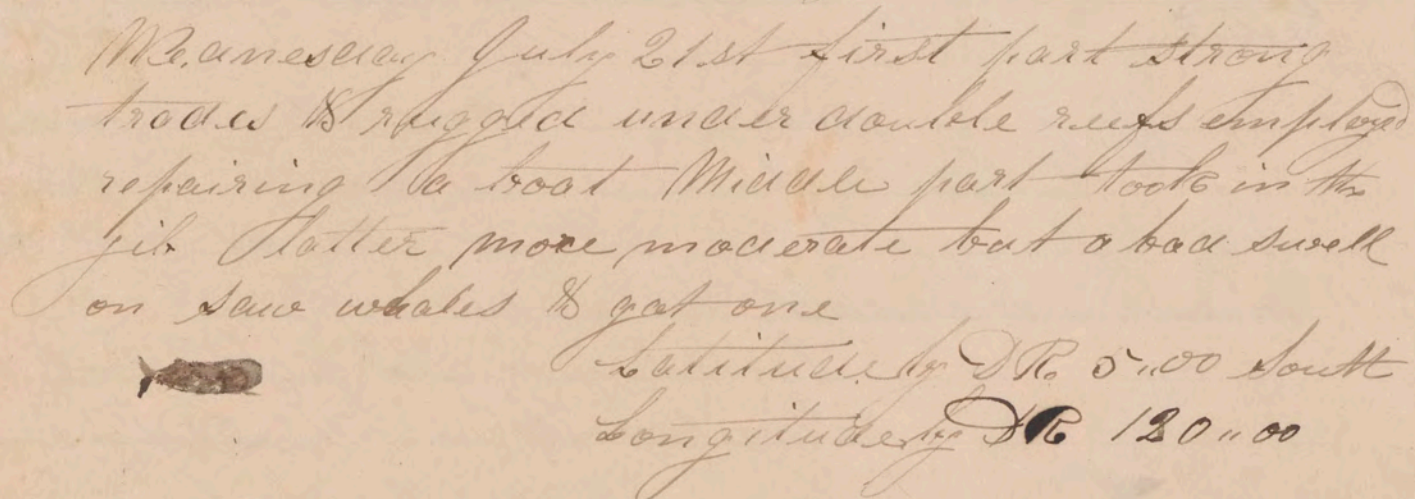 Wednesday July 21st first part strong
trades & rugged under double reefs employed
repairing a boat Middle part took in the
jib latter more moderate but a bad swell
on saw whales & got one
Latitude by DR 5"00 South
Longitude by DR 120"00